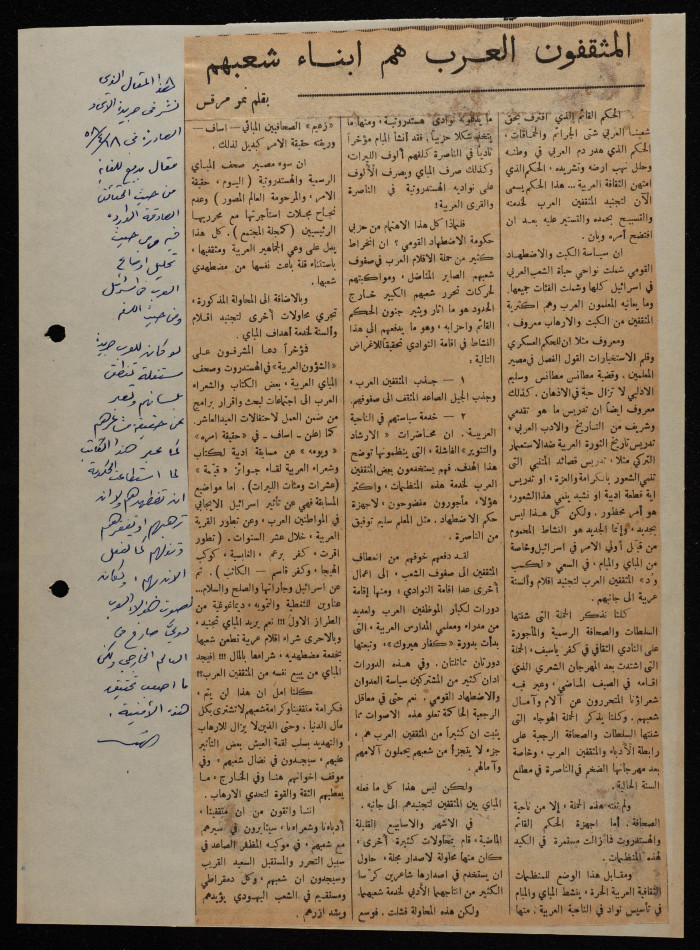 المثقفون العرب هم ابناء شعبهم
بقلم نمر مرقس
الحكم القائم الذي اقترف بحق
شعبنا العربي شتى الجرائم والحماقات،
الحكم الذي هدر دم العربي في وطنه
وحلل نهب ارضه وتشريده، الحكم الذي
امتهن الثقافة العربية... هذا الحكم يسعى
الآن لتجنيد المثقفين العرب لخدمته
والتسبيح بحمده والتستير عليه بعد ان
افتضح أمره وبان.
ان سياسة الكبت والاضطهاد
القومي شملت نواحي حياة الشعب العربي
في اسرائيل كلها وشملت الفئات جميعها.
وما يعانيه المعلمون العرب وهم اكثرية
المثقفين من الكبت والارهاب معروف.
ومعروف مثلا ان للحكم العسكري
وقلم الاستخبارات القول الفصل في مصير
المعلمين. وقضية مطانس مطانس وسليم
لا تزال حية في الاذهان. كذلك
معروف ايضاً ان تدريس ما هو تقدمي
وشريف من التاريخ والادب العربي،
تدريس تاريخ الثورة العربية ضد الاستعمار
التركي مثلا، تدريس قصائد المتنبي التى
تنمي الشعور بالكرامة والعزة، او تدريس
اية قطعة ادبية او نشيد ينمي هذا الشعور،
هو أمر محظور. ولكن كل هذا ليس
بجديد، وإنما الجديد هو النشاط المحموم
من قبل أولي الأمر في اسرائيل وخاصة
من المباي والمبام، في السعي «لكسب
ود» المثقفين العرب لتجنيد اقلام وألسنة
عربية الى جانبهم.
كلنا نذكر الحملة التى شنتها
السلطات والصحافة الرسمية والمأجورة
على النادي الثقافي في كفر ياسيف، الحملة
التى اشتدت بعد المهرجان الشعري الذي
اقامه في الصيف الماضي، وعبر فيه
شعراؤنا المتحررون عن آلام وآمـال
شعبهم. وكلنا يذكر الحملة الهوجاء التى
شنتها السلطات والصحافة الرجعية على
رابطة الأدباء والمثقفين العرب، وخاصة
بعد مهرجانها الضخم في الناصرة في مطلع
السنة الحالية.
ولم تنته هذه الحملة، إلا من ناحية
الصحافة. اما اجهزة الحكم القائم
والهستدروت فما زالت مستمرة في الكيد
لهذه المنظمات.
ومقابل هذا الوضع للمنظمات
الثقافية العربية الحرة، ينشط المباي والمبام
في تأسيس نواد في الناحية العربية. منها
ما نوادي هستدروتية، ومنها ما
يتخذ شكلا حزبياً. فقد أنشأ المبام مؤخراً
نادياً في الناصرة كلفهم ألوف الليرات،
وكذلك صرف المباي ويصرف الألوف
على نواديه الهستدروتية في الناصرة
والقرى العربية!
فلماذا كل هذا الاهتمام من حزبي
حكومة الاضطهاد القومي؟ ان انخراط
كثير من حملة الاقلام العرب في صفوف
شعبهم الصابر المناضل، ومواكبتهم
لحركات تحرر شعبهم الكبير خـارج
الحدود هو ما اثار ويثير جنون الحكم
القائم واحزابه، وهو ما يدفعهم الى هذا
النشاط في اقامة النوادي تحقيقاً للاغراض
التالية:
١ — جـذب المثقفين العرب،
وجذب الجيل الصاعد المثقف الى صفوفهم.
٢ — خدمة سياستهم في الناحية
العربيـة. ان محاضرات «الارشاد
والتنوير» الفاشلة، التى ينظمونها توضح
هذا الهدف، فهم يستخدمون بعض المثقفين
العرب لخدمة هذه المنظمات، واكثر
هؤلاء، مأجورون مفضوحون، لاجهزة
حكم الاضطهاد. مثل المعلم سليم توفيق
من الناصرة.
لقـد دفعهم خوفهم من انعطاف
المثقفين الى صفوف الشعب، الى اعمال
أخرى عدا اقامة النوادي، ومنها إقامة
دورات لكبار الموظفين العرب ولعديد
من مدراء ومعلمي المدارس العربية، التى
بدأت بدورة «كفار هيروك»، وتبعتها
دورتان مماثلتان. وفي هذه الدورات
ادان كثير من المشتركين سياسة العدوان
والاضطهاد القومي. نعم حتى في معاقل
الرجعية الحاكمة تعلو هذه الاصوات مما
يثبت ان كثيراً من المثقفين العرب هم،
جزء لا يتجزأ من شعبهم يحملون آلامهم
وآمالهم.
ولكن ليس هذا كل ما فعله
المباي بين المثقفين لتجنيدهم الى جانبه.
في الاشهر والاسابيع القليلة
الماضية، قام بمحاولات كثيرة أخرى،
كان منها محاولة لاصدار مجلة، حاول
ان يستخدم في اصدارها شاعرين كرّسا
الكثير من انتاجهما الأدبي لخدمة شعبهما.
ولكن هذه المحاولة فشلت. فوسع
«زعيم» الصحافيين المباثي — اساف —
وريقته حقيقة الامر كبديل لذلك.
ان سوء مصير صحف المبـاي
الرسمية والهستدروتية (اليـوم، حقيقة
الامر، والمرحومة العالم المصور) وعدم
نجـاح مجـلات استأجرتها مع محرريهـا
الرئيسيين (كمجلة المجتمع). كل هذا
يدل على وعي الجماهير العربية ومثقفيها،
باستثناء قلة باعت نفسها من مضطهدي
شعبها.
وبالاضافة الى المحاولة المذكورة،
تجري محاولات أخرى لتجنيد اقـلام
وألسنة لخدمة أهداف المباي.
فمؤخراً دعـا المشرفـون عـلى
«الشؤون العربية» في الهستدروت وصحف
المباي العربية، بعض الكتاب والشعراء
العرب الى اجتماعات لبحث واقرار برامج
من ضمن العمل لاحتفالات العيد العاشر.
كما اعلن ـ اساف ـ في «حقيقة امره»
و«يومه» عن مسابقة ادبية لكتاب
وشعراء العربية لقـاء جـوائز «قيّمة»
(عشرات ومئات الليرات). اما مواضيع
المسابقة فهي عن تأثير اسرائيل الايجابي
في المواطنين العرب، وعن تطور القرية
العربية، خلال عشر السنوات. (تطور
اقرت، كفر برعم، الغابسية، كوكب
الهيجا، وكفر قاسم — الكاتب). ثم
عن اسرائيل وجاراتها والصلح والسلام...
عناوين للتغطية والتمويه، ديماغوغية من
الطراز الاول!!! نعم يريد المباي تجنيد،
وبالاحرى شراء اقلام عربية تطعن شعبها
بخدمة مضطهديه، شراءها بالمال!!! أفيجد
المباي من يبيع نفسه من المثقفين العرب!!
كلنا امل ان هذا لن يتم،
فكرامة مثقفينا وكرامة شعبهم لا تشترى بكل
مال الدنيا. وحتى الذين لا يزال للارهاب
والتهديد بسلب لقمة العيش بعض التأثير
عليهم، سيجـدون في نضال شعبهم، وفي
موقف اخوانهم هنـا وفي الخـارج، مـا
يعطيهم الثقة والقوة لتحدي الارهاب.
اننـا واثقون من ان مثقفينـا،
أدباءنا وشعراءنا، سيثابرون في سيرهم
مع شعبهم، في موكبه المظفر الصاعد في
سبيل التحرر والمستقبل السعيد القريب
وسيجدون ان شعبهم، وكل ديمقراطي
ومستقيم في الشعب اليهودي يؤيدهم
ويشد ازرهم.
هذا المقال الذي
نشر في جريدة الاتحاد
الصادرة في ٥٨/٤/١٨
مقال بديع للغاية
من حيث الحقائق
الصادقة الواردة
فيه ومن حيث
تحليل اوضاع
العرب في اسرائيل
لو كان للعرب جريدة
مستقلة تنطق
بلسانهم وتعبر
عن حقيقة مشاعرهم
كما عبر هذا الكاتب
لما استطاعت الحكومة
ان تضطهدهم ولا ان
ترهبهم او تفقرهم
وتذلهم كما تفعل
الآن بهم، ولكان
لصوت هؤلاء العرب
دويّ صارخ في
العالم الخارجي ولكن
ما اصعب تحقيق
هذه الأمنية.